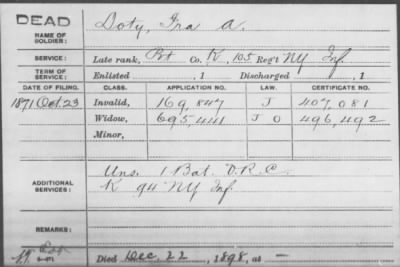 DEAD
NAME OF SOLDIER: Doty, Ira A.
SERVICE: Late rank, Pvt Co. K, 105 Reg't NY Inf.
TERM OF SERVICE: Enlisted , 1 Discharged , 1
DATE OF FILING. CLASS. APPLICATION NO. LAW. CERTIFICATE NO.
1891 Oct. 23 Invalid, 169,847 J 407,081
Widow, 695,441 J O 496,492
Minor,
ADDITIONAL SERVICES: Uns. 1 Bat. V.R.C.
K 94 NY Inf.
REMARKS:
Died Dec. 22, 1898, at —